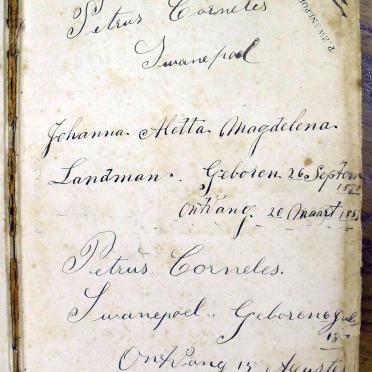 Petrus Corneles
Swanepoel
Johanna Aletta Magdelena
Landman. Geboren 26 Septem
Ontvang 20 Maart
Petrus Corneles.
Swanepoel. Geboren 6 July
Ontvang 15 Agustus